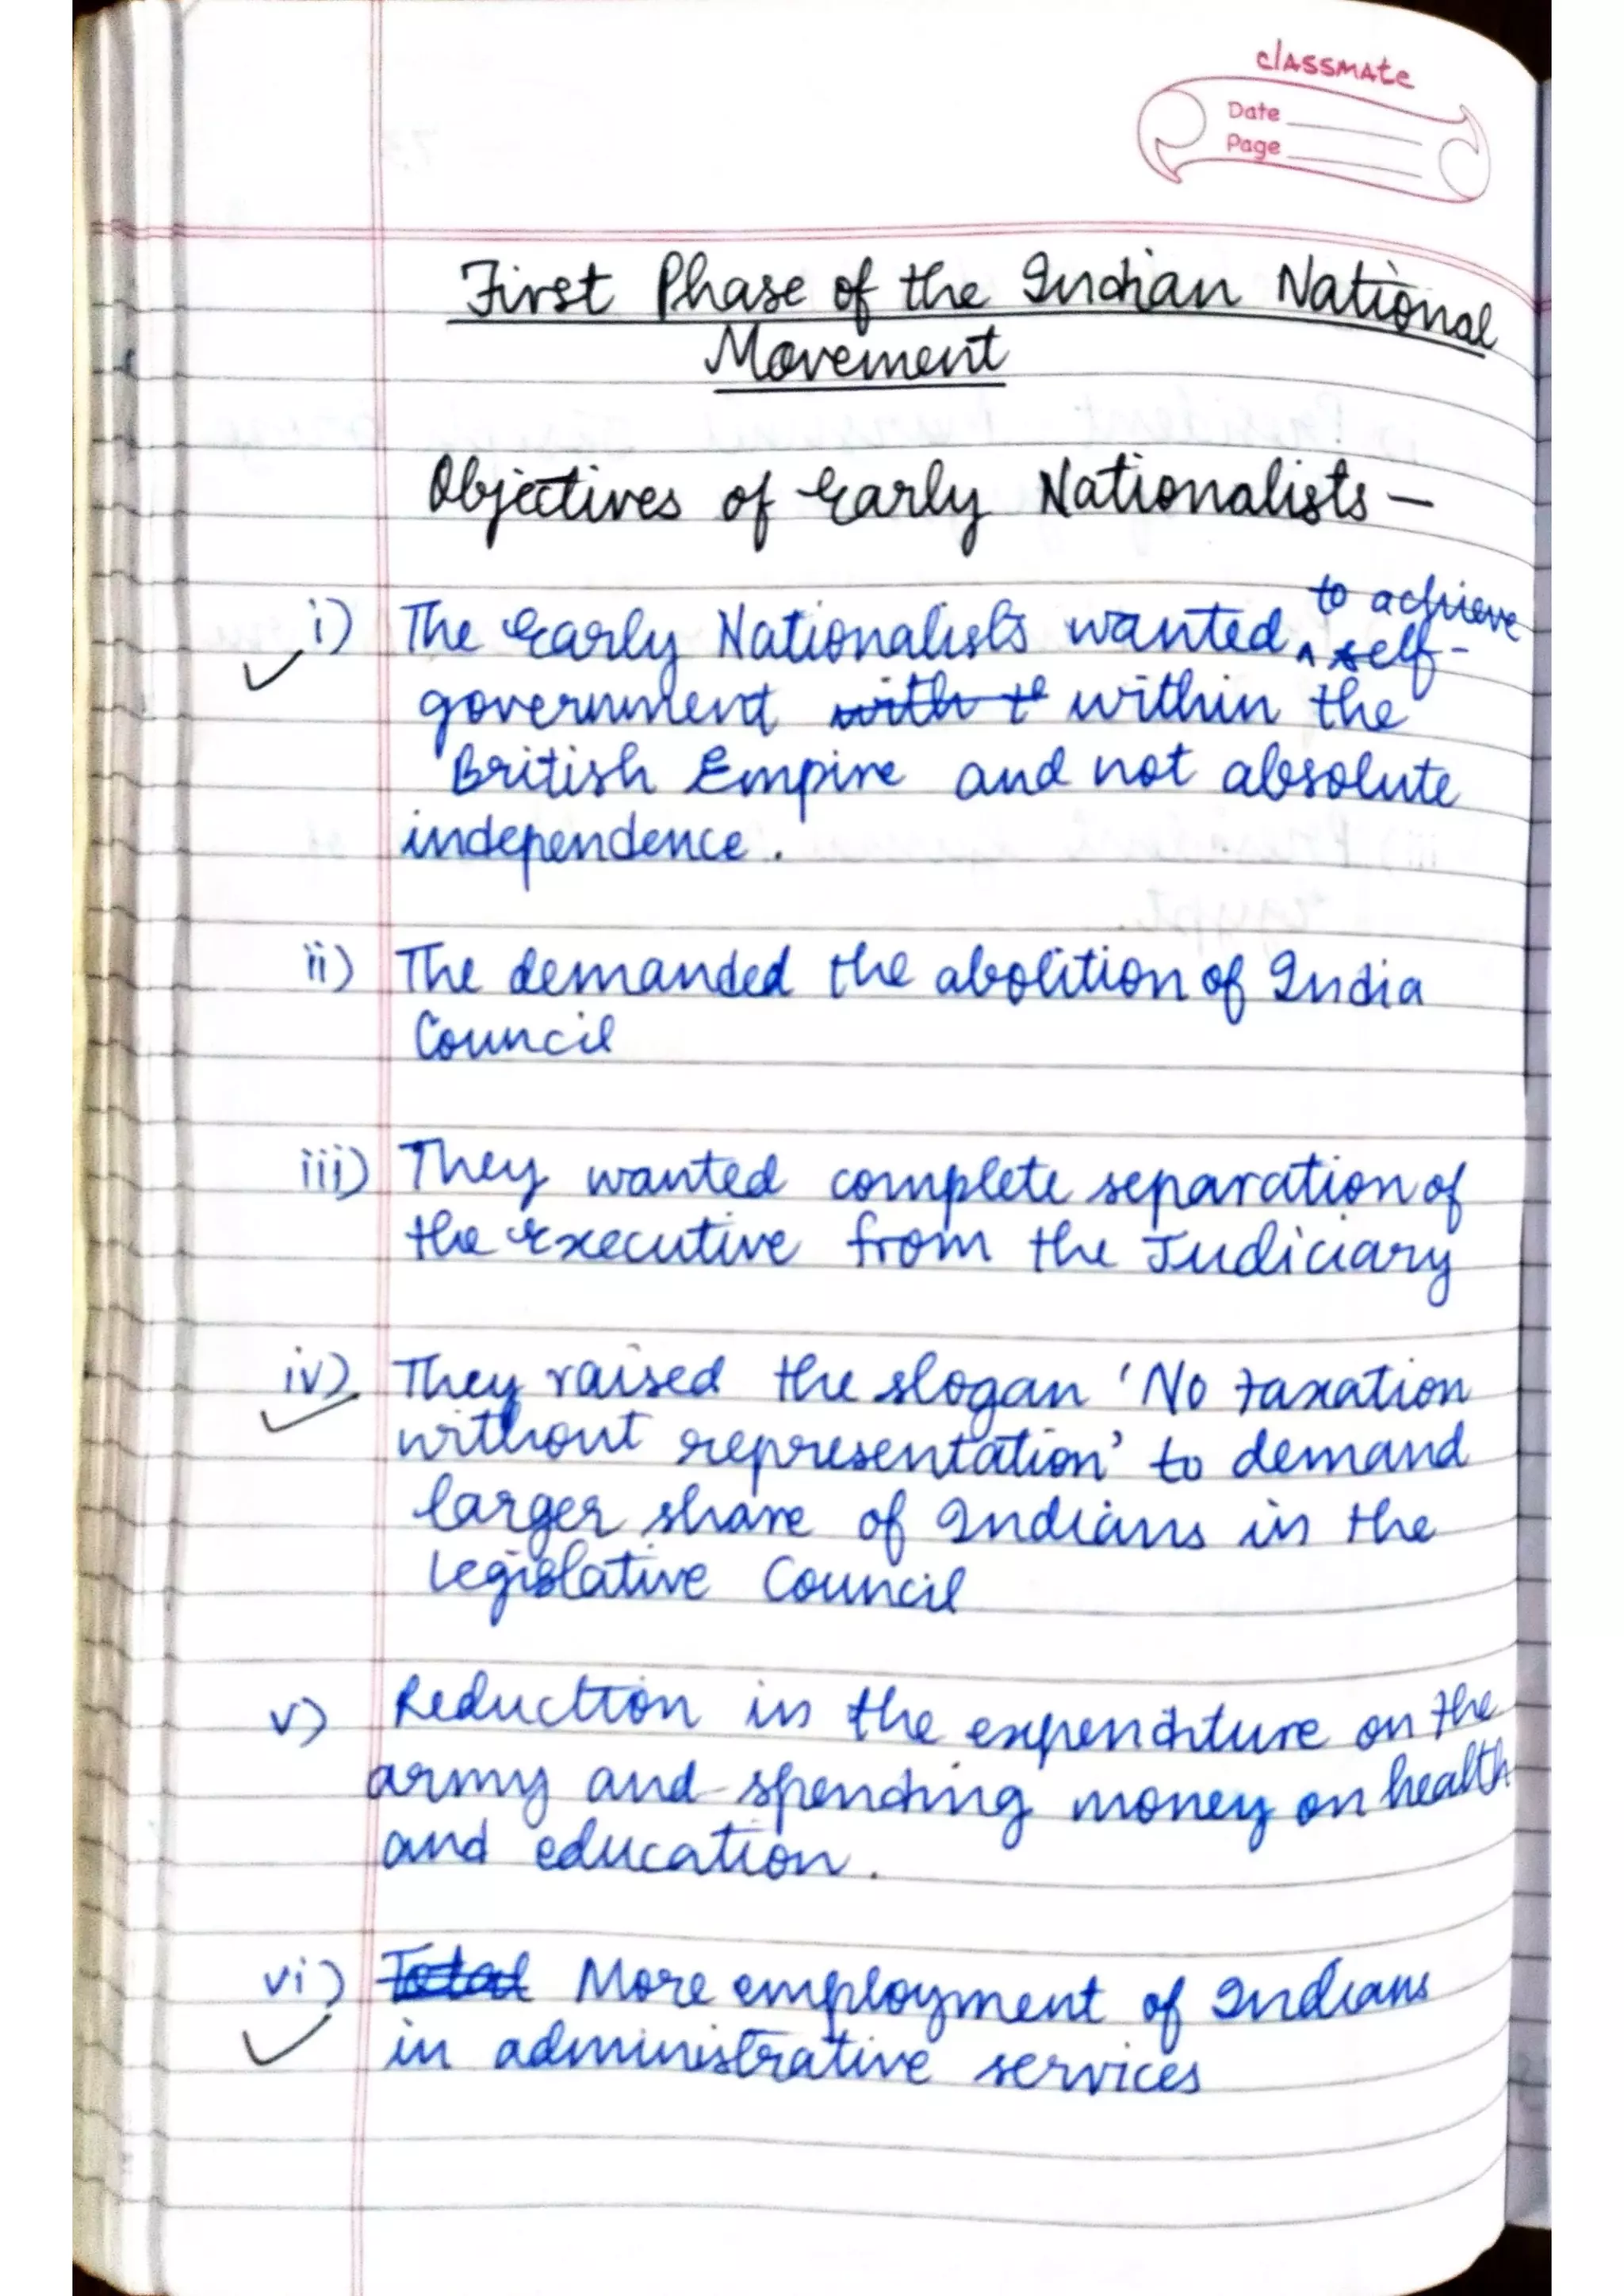 classmate
Date
Page
First Phase of the Indian National
Movement
Objectives of Early Nationalists –
to achieve
i) The Early Nationalists wanted ^ self-
government with t within the
British Empire and not absolute
independence.
ii) The demanded the abolition of India
Council
iii) They wanted complete separation of
the Executive from the Judiciary
iv) They raised the slogan 'No taxation
without representation' to demand
larger share of Indians in the
Legislative Council
v) Reduction in the expenditure on the
army and spending money on health
and education.
vi) Total More employment of Indians
in administrative services